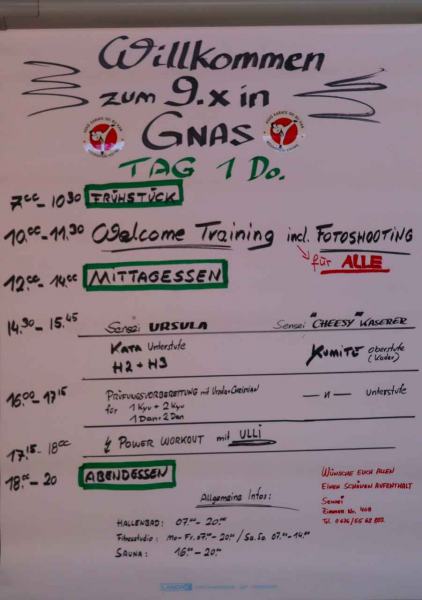 Willkommen
zum 9.x in
GNAS
TAG 1 Do.
7.00 - 10.30 FRÜHSTÜCK
10.00 - 11.30 Welcome Training incl. FOTOSHOOTING
für ALLE
12.00 - 14.00 MITTAGESSEN
14.30 - 15.45 Sensei URSULA Sensei "CHEESY" KASERER
KATA Unterstufe KUMITE Oberstufe
H2 + H3 (Kader)
16.00 - 17.15 PRÜFUNGSVORBEREITUNG mit — " — Unterstufe
für 1 Kyu + 2 Kyu
1 Dan + 2 Dan
17.15 - 18.00 POWER WORKOUT mit ULLI
18.00 - 20 ABENDESSEN
WÜNSCHE EUCH ALLEN
EINEN SCHÖNEN AUFENTHALT
Sensei
Zimmer Nr. 408
Allgemeine Infos:
HALLENBAD: 07.00 - 20.00
Fitnessstudio: Mo - Fr. 07.00 - 20.00 / Sa. So. 07.00 - 14.00
SAUNA: 16.00 - 20.00